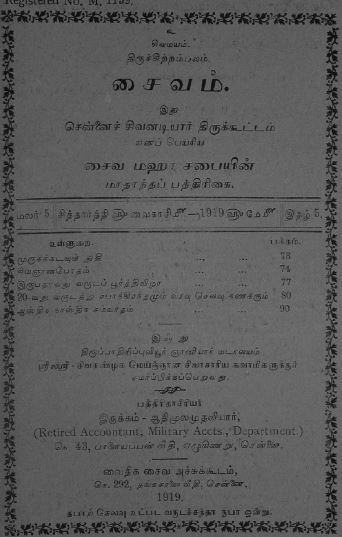 Registered No. M. 1139.
உ
சிவமயம்.
திருச்சிற்றம்பலம்.
சைவம்.
இது
சென்னைச் சிவனடியார் திருக்கூட்டம்
எனப் பெயரிய
சைவ மஹா சபையின்
மாதாந்தப் பத்திரிகை.
மலர் 5. சித்தார்த்தி ௵ வைகாசி ௴ — 1919 ௵ மே ௴ இதழ் 5.
உள்ளுறை. பக்கம்.
முருகக்கடவுள் துதி ... ... 73
சிவஞானபோதம் ... ... 74
இருபதாவது வருடப் பூர்த்திவிழா ... ... 77
20-வது வருடத்து வரவு செலவு கணக்கும் 80
ஆஸ்திக நாஸ்திக சம்வாதம் ... ... 90
இஃது
திருப்பாதிரிப்புலியூர் ஞானியார் மடாலயம்
ஸ்ரீலஸ்ரீ சிவசண்முக மெய்ஞ்ஞான சிவாசாரிய சுவாமிகளுக்குச்
சமர்ப்பிக்கப்பெற்றது.
பத்திராசிரியர்
இருக்கம் - ஆதிமூலமுதலியார்,
(Retired Accountant, Military Accts., Department.)
செ. 43, வீதி, ஏழுகிணறு, சென்னை.
வைதிக சைவ அச்சுக்கூடம்,
செ. 292, தங்கசாலை வீதி, சென்னை.
1919.
தபாற் செலவு உட்பட வருடச்சந்தா ரூபா ஒன்று.